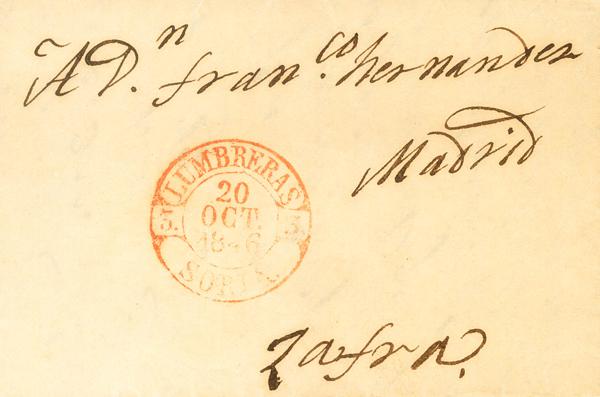 A D.n fran.co hernandez
Madrid
LUMBRERAS
20
OCT.
1846
3. 3.
SORIA.
Zafra.